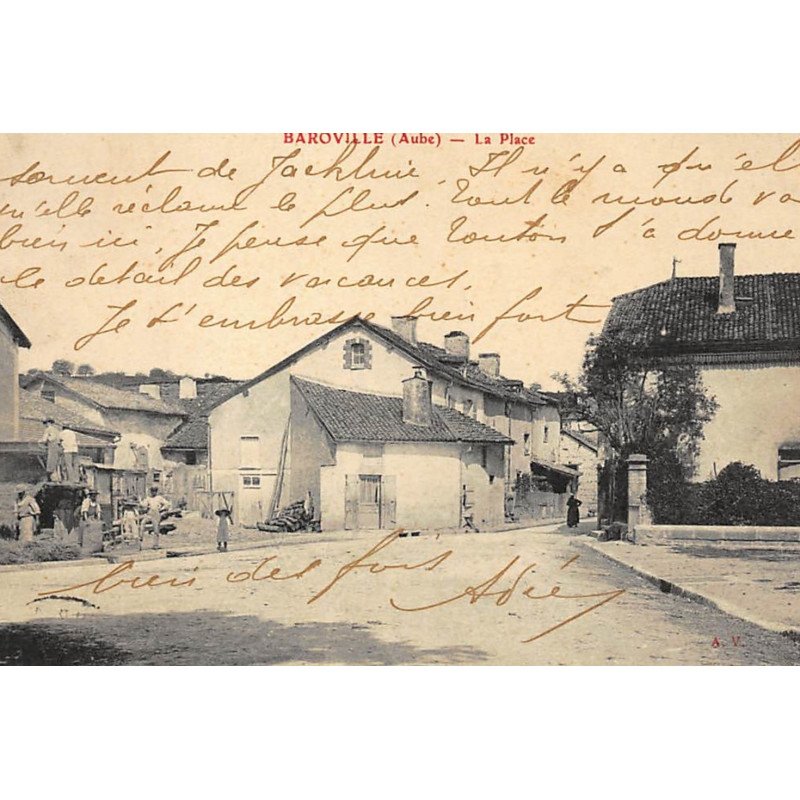 BAROVILLE (Aube) — La Place
souvent de Jackline. Il n'y a qu'el
qu'elle réclame le plus. Tout le monde va
bien ici, je pense que Tonton t'a donné
le détail des vacances,
Je t'embrasse bien fort
bien des fois Adrée
A. V.